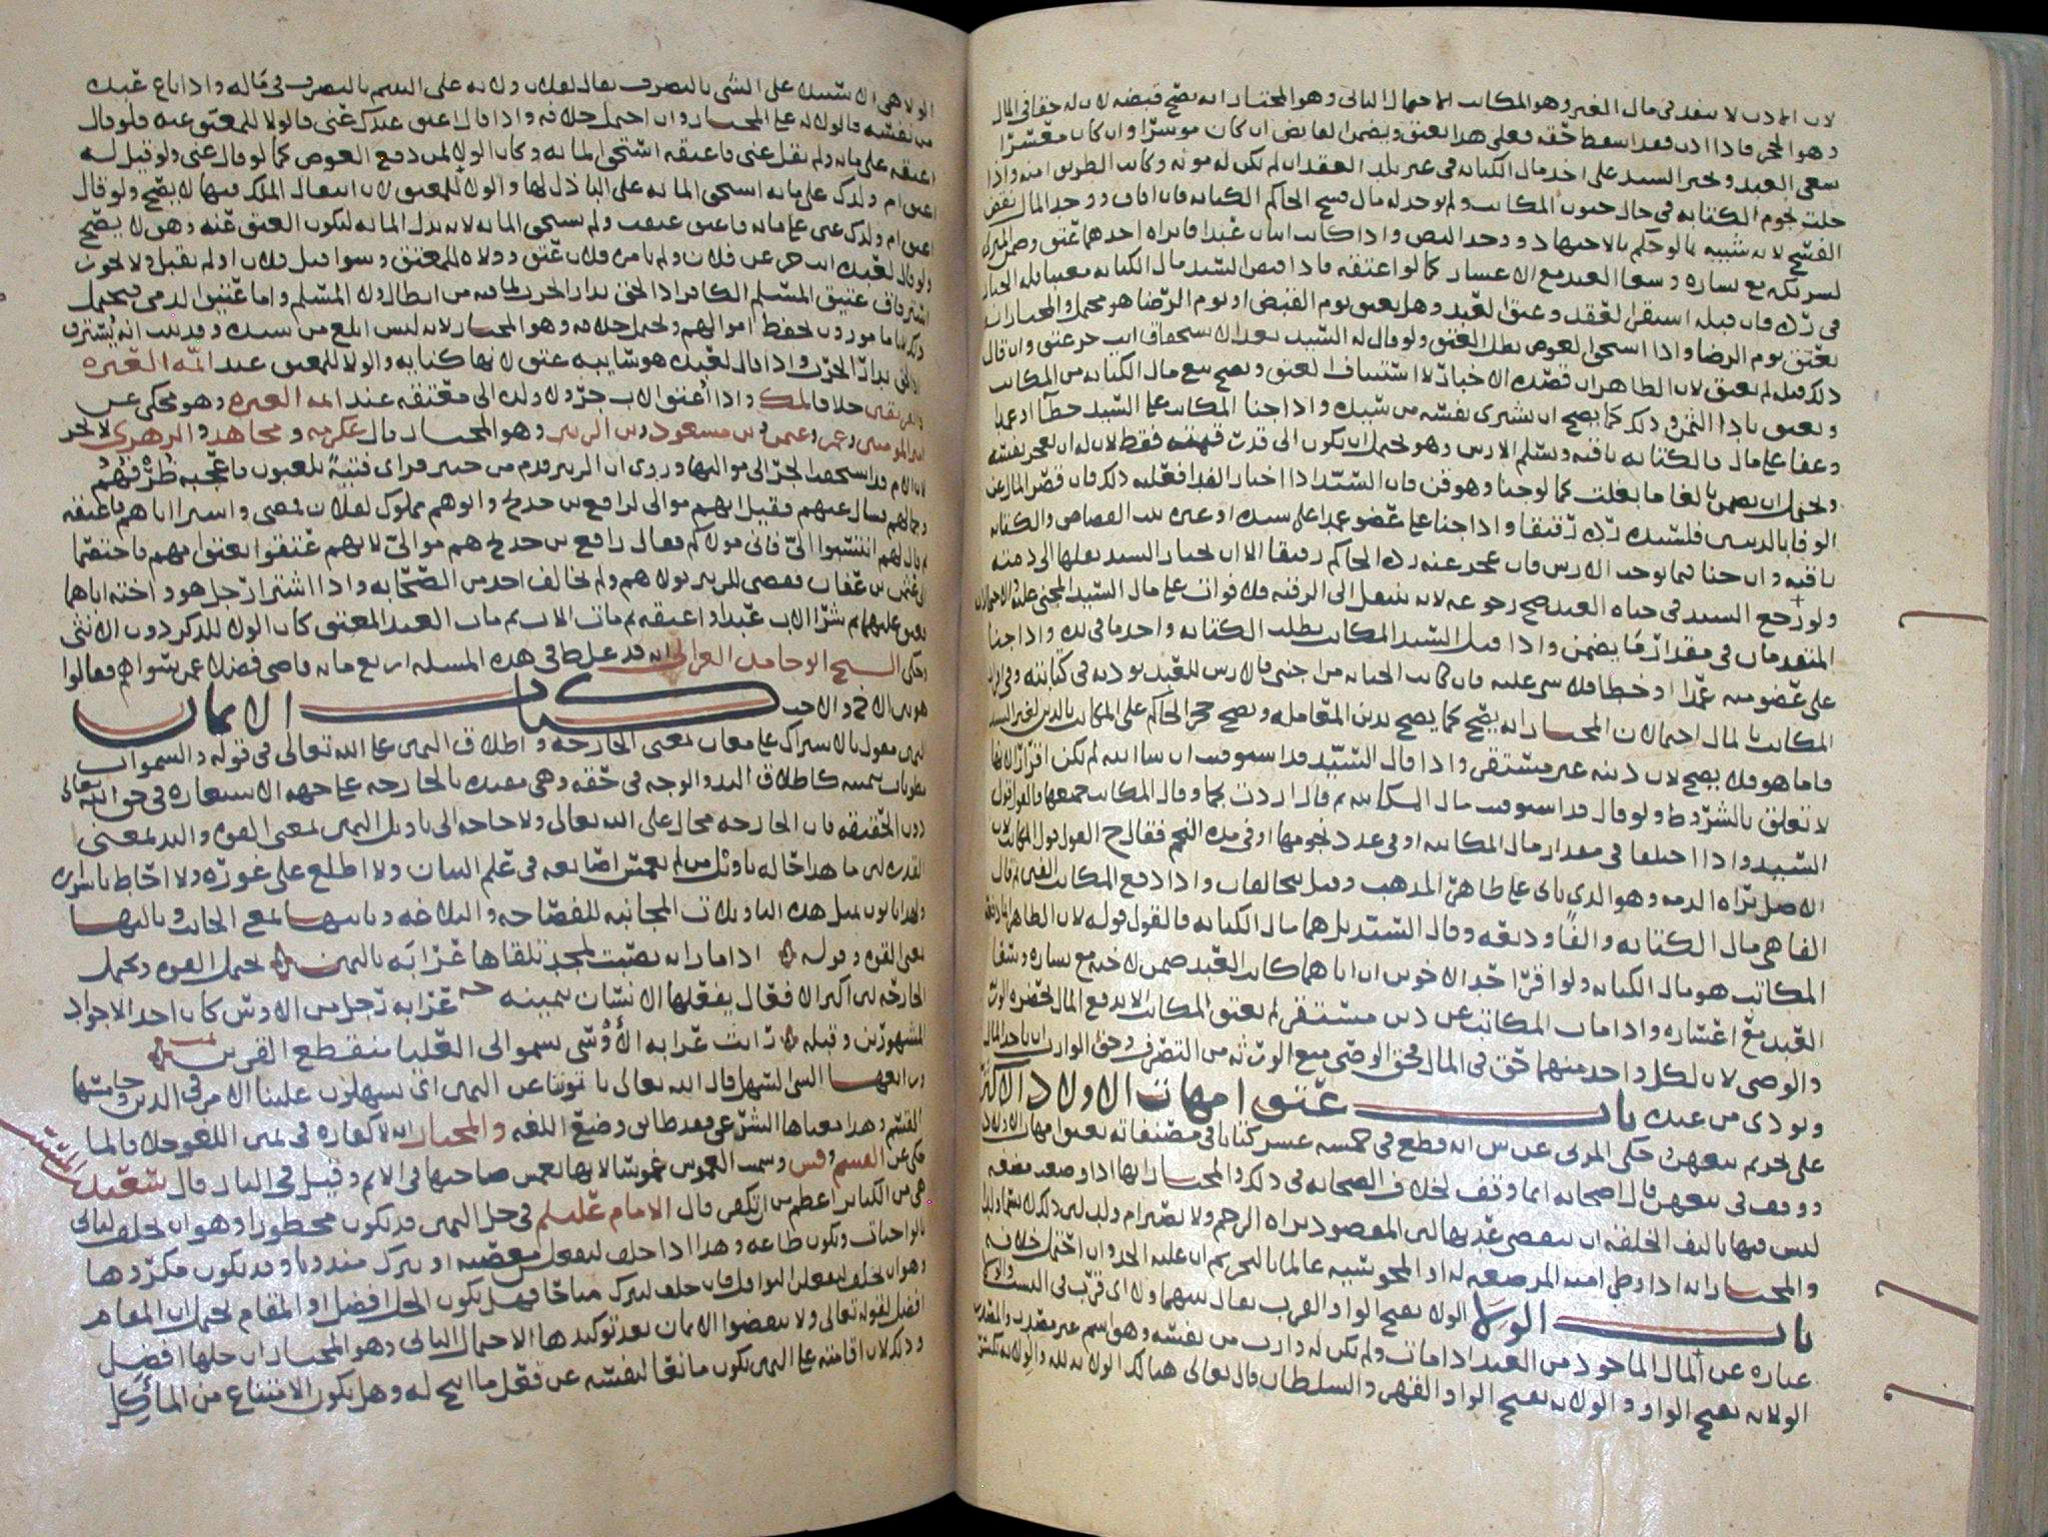 لان الاذن لا ينفذ في مال الغير وهو المكاتب الاحتمال الثاني وهو المختار انه يصح قبضه لان له حقا في المال
وهو الحجر فاذا اذن فقد اسقط حقه فعلى هذا يعتق ويضمن القابض ان كان موسرا وان كان معسرا
سعى العبد ويجبر السيد على اخذ مال الكتابة في غير بلد العقد ان لم يكن له مونه وكانت الطريق امنه واذا
حلت نجوم الكتابه في حال جنون المكاتب ولم يوجد له مال فسخ الحاكم الكتابه فان افاق ووجد المال نقض
الفسخ لانه شبيه بما لو حكم بالاجتهاد ووجد النص واذا كاتب اثنان عبدا فابراه احدهما عتق وضمن
لشريكه مع يساره وسعا العبد مع الاعسار كما لو اعتقه فاذا قبض السيد مال الكتابه معيبا فله الخيار
في رده فان قبله استقر العقد وعتق العبد وهل يعتق يوم القبض او يوم الرضا هو محتمل والمختار انه
يعتق يوم الرضا واذا استحق العوض بطل العتق ولو قال له السيد بعد الاستحقاق انت حر عتق وان قال
ذلك قبله لم يعتق لان الظاهر ان قصده الاخبار لا استيناف العتق ويصح بيع مال الكتابه من المكاتب
ويعتق باداء الثمن وذلك كما يصح ان يشتري نفسه من سيده واذا جنا المكاتب على السيد خطا او عمدا
وعفا على مال فالكتابه باقيه ويسلم الارش وهو يحتمل ان يكون الى قدر قيمته فقط لان له ان يعجز نفسه
ويحتمل ان يضمن بالغا ما بلغت كما لو جنا وهو قن فان السيد اذا اختار الفدا فعليه ذلك فان قصر المال عن
الوفا بالدينين فللسيد رده رقيقا واذا جنا على عضو عبدا على سيده او غيره ثبت القصاص والكتابه
باقيه وان جنا فيما يوجب الارش فان عجز عنه رده الحاكم رقيقا الا ان يختار السيد نقلها الى ذمته
ولو رجع السيد في حياه العبد صح رجوعه لانه ينتقل الى الرقبه فلا فوات على مال السيد المجني عليه
المتقدمان في مقدار ما يضمن واذا قتل السيد المكاتب بطلت الكتابه واخذ ما في يده واذا جنا
على عضو منه عمدا او خطا فلا شي عليه فان كانت الجنايه من اجنبي فالارش للعبد يوديه في كتابته وفي
المكاتب بالمال احتمالان المختار انه يصح كما يصح بدين المعامله ويصح حجر الحاكم على المكاتب بالدين لغير السيد
فاما هو فلا يصح لان دينه غير مستقر واذا قال السيد قد استوفيت ان شا الله لم يكن اقرارا لانها
لا تعلق بالشروط ولو قال قد استوفيت مال المكاتبه ثم قال اردت نجما وقال المكاتب جميعها فالقول قول
السيد واذا اختلفا في مقدار مال المكاتبه او في عدد نجومها او في مده النجم فقال ح القول قول المكاتب لان
الاصل براه الذمه وهو الذي ياتي على ظاهر المذهب وقيل يتحالفان واذا دفع المكاتب الفين ثم قال
الفا هي مال الكتابه والفا وديعه وقال السيد بل هما مال الكتابه فالقول قوله لان الظاهر
المكاتب هو مال الكتابه ولو اقر احد الاخوين ان اباهما كاتب العبد ضمن لاخيه مع يساره وسعا
العبد مع اعساره واذا مات المكاتب عن دين مستغرق لم يعتق المكاتب الا بدفع المال بحضره الوارث
والوصي لان لكل واحد منهما حق في المال فحق الوصي منع الورثه من التصرف وحق الوارث ان ياخذ المال
ويودي من عنده باب عتق امهات الاولاد الاكثر
على تحريم بيعهن وحكى المزني عن ش انه قطع في خمسه عشر كتابا في مصنفاته بعتق امهات الاولاد
ووقف في بيعهن قال اصحابه انما وقف لخلاف الصحابه في ذلك والمختار انها اذا وضعت مضغه
ليس فيها بالف الخلقه ان تنقضي عدتها لان المقصود براه الرحم ولا تصير ام ولد لان ذلك لا يسما ولدا
والمختار انه اذا وطي امته المرضعه له او المجوسيه عالما بالتحريم ان عليه الحد وان احتمل خلافه
باب الولا الولا بفتح الواو القرب يقال بينهما ولا اي قرب في النسب
عباره عن المال الماخوذ من العبد اذا مات ولم يكن له وارث من نفسه وهو اسم غير مصدر والمصدر
الولايه بفتح الواو والولايه بفتح الواو القهر والسلطان قال تعالى هنالك الولايه لله والولايه بكسر
الواو هي الاستيلا على الشي بالتصرف يقال لفلان ولايه على اليتيم بالتصرف في ماله واذا باع عبده
من نفسه فالولا له على المختار وان احتمل خلافه واذا قال اعتق عبدك عني فالولا للمعتق عنه فلو قال
اعتقه على مايه ولم يقل عني فاعتقه استحق المايه وكان الولا لمن دفع العوض كما لو قال عني ولو قيل له
اعتق ام ولدك على مايه استحق المايه على الباذل لها والولا للمعتق لان انتقال الملك فيها لا يصح ولو قال
اعتق ام ولدك عني على مايه فاعتق عتقت ولم يستحق المايه لانه بذل المايه ليكون العتق عنه وهو لا يصح
ولو قال لعبده انت حر عن فلان ولم يامره فلان عتق وولاه للمعتق وسوا قبل فلان او لم يقبل ولا يجوز
استرقاق عتيق المسلم الكافر اذا لحق بدار الحرب لما فيه من ابطال ولا المسلم واما عتيق الذمي فيحتمل
ذلك مامورون بحفظ اموالهم ويحتمل خلافه وهو المختار لانه ليس ابلغ من سيده وقد ثبت انه يسترق
اذا لحق بدار الحرب واذا قال لعبده هو سايبه عتق لانها كنايه والولا للمعتق عند ايمه العتره
والفريقين خلافا لملك واذا اعتق الاب جر ولا ولده الى معتقه عند ايمه العتره وهو محكي عن
امير المومنين وعمر وعثمن وبن مسعود وبن الزبير وهو المختار قال عكرمه ومجاهد والزهري لا يجر
لان الام قد استحقت الجر الى مواليها وروي ان الزبير قدم من خيبر فراى فتيه يلعبون فاعجبه ظرفهم
وجمالهم فسال عنهم فقيل انهم موالي لرافع بن خديج وابوهم مملوك لفلان فمضى واشترا اباهم فاعتقه
ثم قال لهم انتسبوا الي فاني مولاكم فقال رافع بن خديج هم موالي لانهم عتقوا بعتق امهم فاختصما
الى عثمن بن عفان فقضى للزبير بولاهم ولم يخالف احد من الصحابه واذا اشترا رجل هو واخته اباهما
يعتق عليهما ثم شرا الاب عبدا واعتقه ثم مات الاب ثم مات العبد المعتق كان الولا للذكر دون الانثى
وحكى الشيخ ابو حامد الغزالي انه قد غلط في هذه المسله اربع مايه قاضي فضلا عمن سواهم فقالوا
هو بين الاخ والاخت كتاب الايمان
اليمين مقول بالاشتراك على معان بمعنى الجارحه واطلاق اليمين على الله تعالى في قوله والسموات
مطويات بيمينه كاطلاق اليد والوجه في حقه وهي مقيده بالجارحه على جهه الاستعاره في حق الله تعالى
دون الحقيقه فان الجارحه محال على الله تعالى ولا حاجه الى تاويل اليمين بمعنى القوه واليد بمعنى
القدره لان ما هذا حاله تاويل من لم يغمس اصابعه في علم البيان ولا اطلع على غوره ولا احاط باسراره
ولهذا ياتون بمثل هذه التاويلات المجانبه للفصاحه والبلاغه وثانيها بمعنى الجانب وثالثها
بمعنى القوه وقوله اذا ما رايه نصبت لمجد تلقاها عرابه باليمين يحتمل القوه ويحتمل
الجارحه لان اكثر الافعال يفعلها الانسان بيمينه عرابه رجل من الاوس كان احد الاجواد
المشهورين وقبله رايت عرابه الاوسي يسمو الى العليا منقطع القرين
ورابعها الشي السهل قال الله تعالى تاتوننا عن اليمين اي تسهلون علينا الامر في الدين وخامسها
القسم وهذا معناها الشرعي فقد طابق وضع اللغه والمختار انه لا كفاره في يمين اللغو خلافا لما
حكي عن القسم وقس وسميت الغموس غموسا لانها تغمس صاحبها في الاثم وقيل في النار قال سعيد
هي من الكباير اعظم من ان تكفر قال الامام علىلم في حل اليمين قد تكون محظورا وهو ان يحلف لياتي
بالواجبات ويكون طاعه وهذا اذا حلف ليفعل معصيه او يترك مندوبا وقد يكون مكروها
وهو ان يحلف ليفعلن النوافل فان حلف ليترك مباحا فهل يكون الحل افضل او المقام يحتمل ان المقام
افضل لقوله تعالى ولا تنقضوا الايمان بعد توكيدها الاحتمال الثاني وهو المختار ان حلها افضل
وذلك لان اقامته على اليمين يكون مانعا لنفسه عن فعل ما ابيح له وهل يكون الامتناع من الماكل